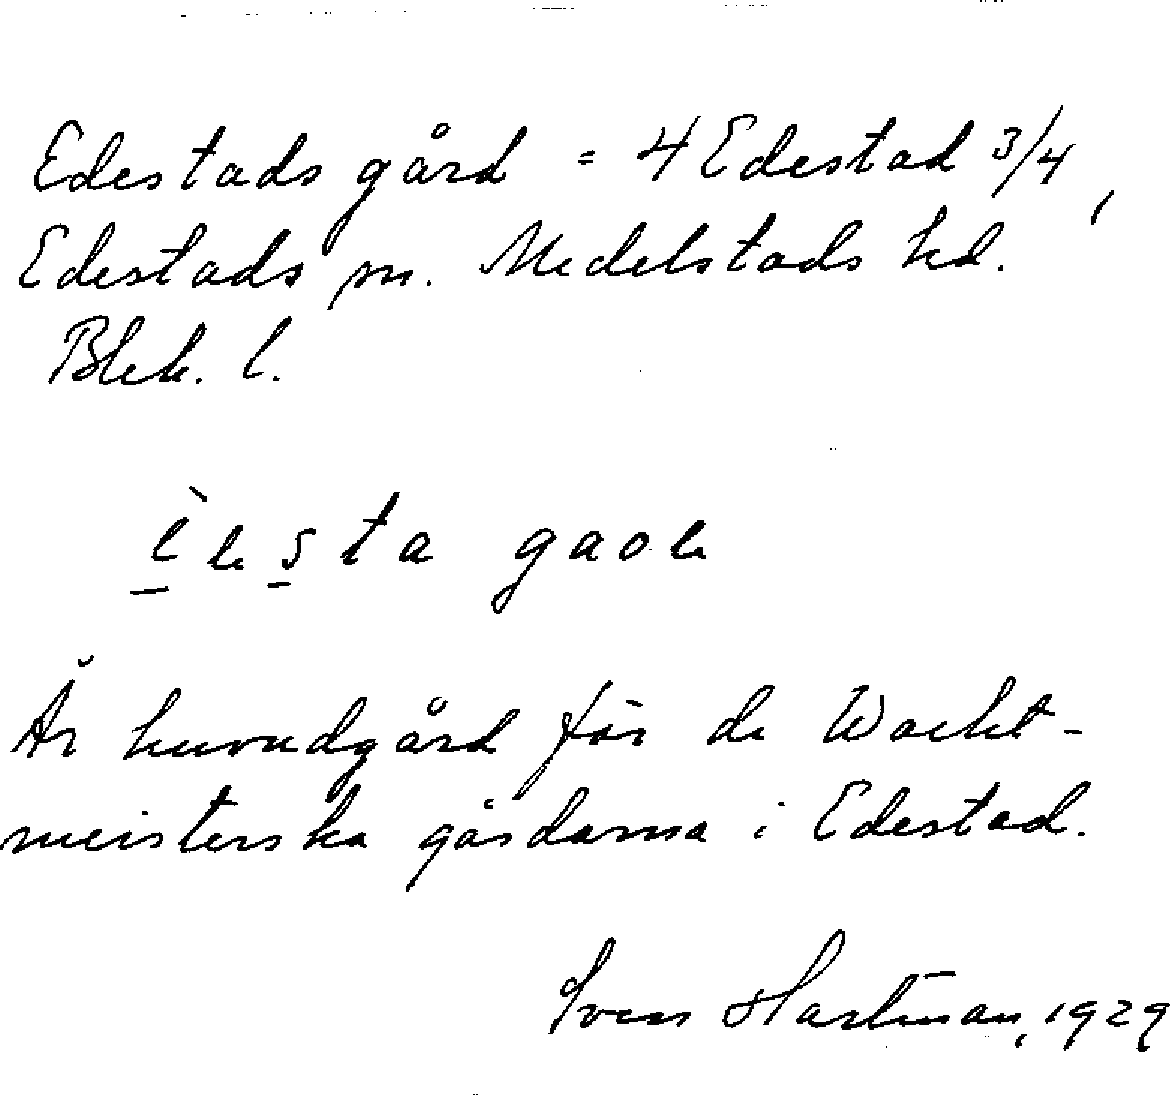 Edestads gård = 4 Edestad 3/4,
Edestads sn. Medelstads hd.
Blek. l.
gaole
Är huvudgård för de Wacht-
meisterska gårdarna i Edestad.
Sven Hartman, 1929